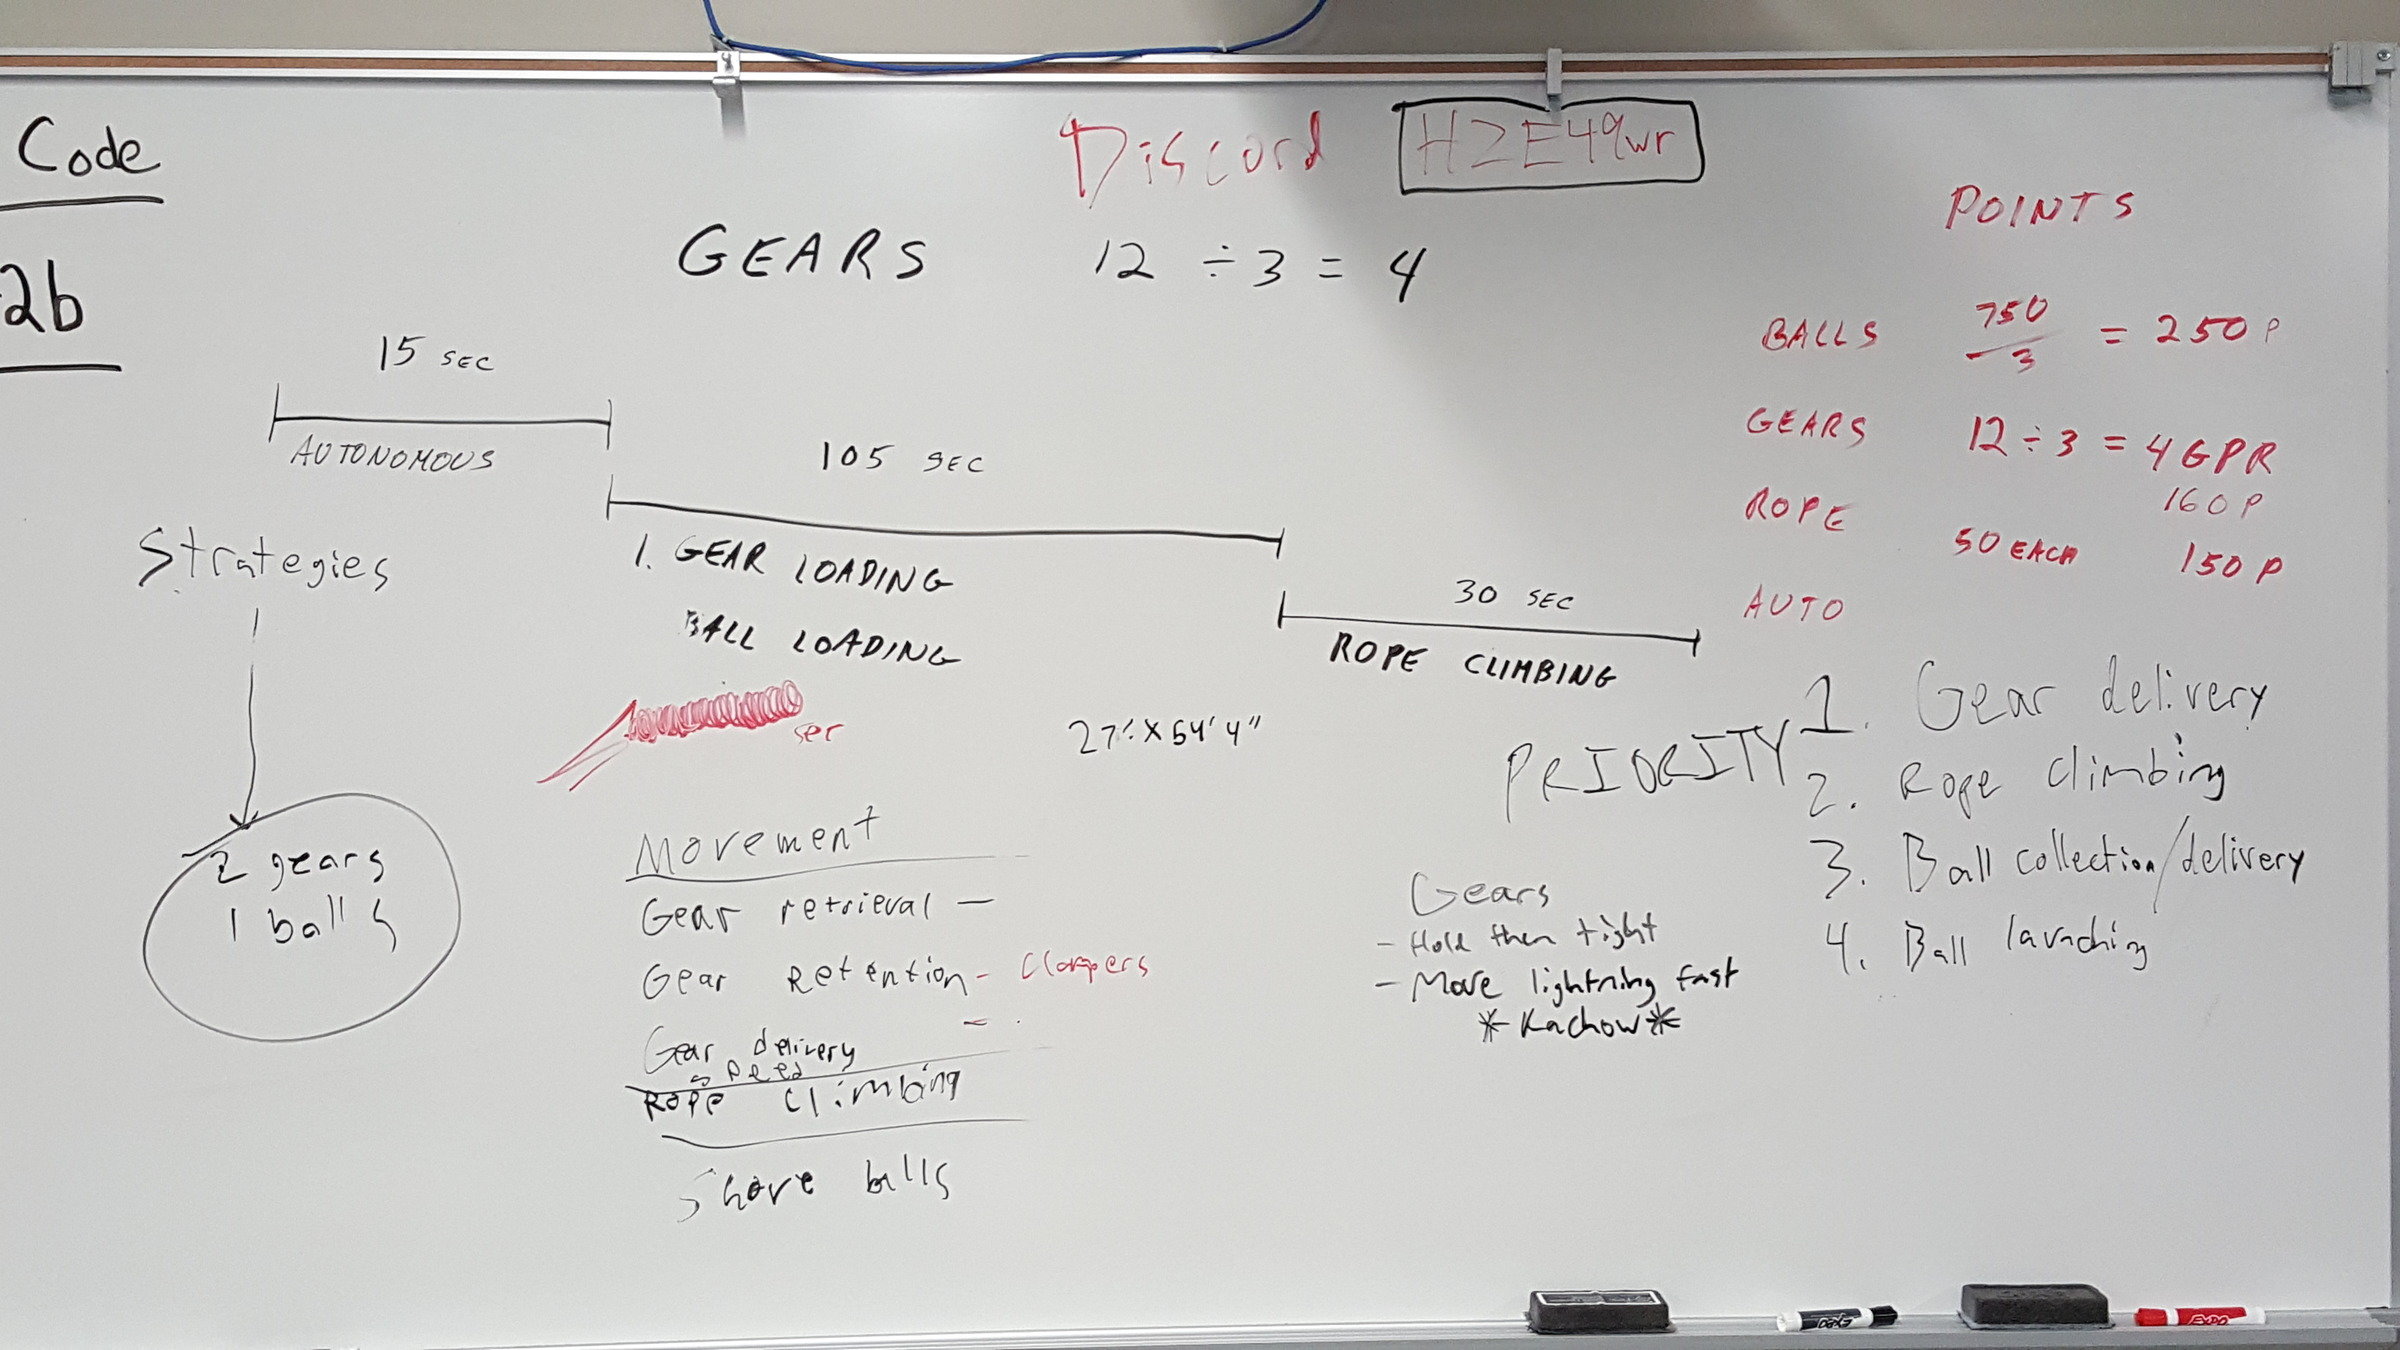 Code
2b
Discord
GEARS 12 ÷ 3 = 4
15 SEC
AUTONOMOUS
105 SEC
1. GEAR LOADING
BALL LOADING
30 SEC
ROPE CLIMBING
POINTS
BALLS 750/3 = 250 P
GEARS 12 ÷ 3 = 4 GPR
160 P
ROPE 50 EACH 150 P
AUTO
Strategies
2 gears
1 balls
ser
27' X 54' 4"
Movement
Gear retrieval -
Gear Retention - Clampers
Gear delivery -
speed
Rope Climbing
Shove balls
PRIORITY
1. Gear delivery
2. Rope climbing
3. Ball collection/delivery
4. Ball launching
Gears
- Hold them tight
- Move lightning fast
*Kachow*
EXPO
EXPO